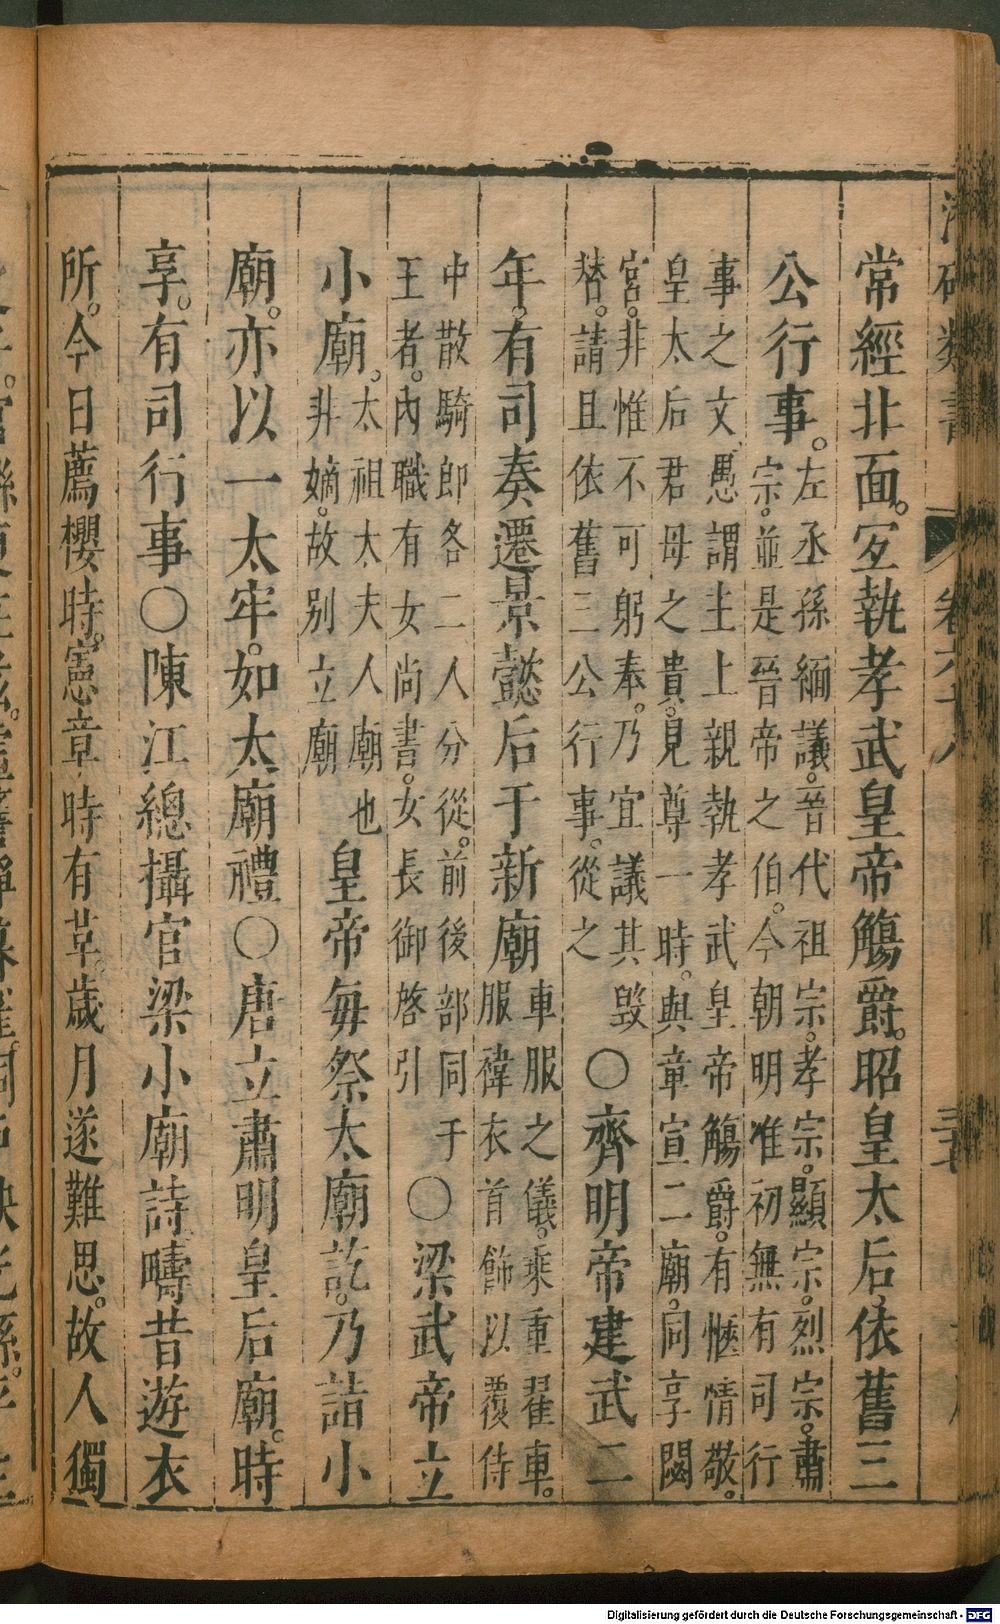 常經北面。宐執孝武皇帝觴爵。昭皇太后依舊三
公行事。
左丞孫緬議。晉代祖宗。孝宗。顯宗。烈宗。肅
宗。並是晉帝之伯。今朝明准初無有司行
事之文愚謂主上親執孝武皇帝觴爵。有愜情敬。
皇太后君母之貴。見尊一時。與章宣二廟。同享閟
宮。非惟不可躬奉。乃宜議其毀
替。請且依舊三公行事。從之
○齊明帝建武二
年。有司奏遷景懿后于新廟
車服之儀。乘重翟車。
服褘衣首飾以覆侍
中散騎郎各二人分從。前後部同于
王者。內職有女尚書。女長御啓引
○梁武帝立
小廟。
太祖太夫人廟也
非嫡。故别立廟
皇帝每祭太廟訖。乃詣小
廟。亦以一太牢。如太廟禮○唐立肅明皇后廟。時
享。有司行事○陳江總攝官梁小廟詩疇昔遊衣
所。今日薦櫻時。憲章時有革。歲月遂難思。故人獨
Digitalisierung gefördert durch die Deutsche Forschungsgemeinschaft - DFG